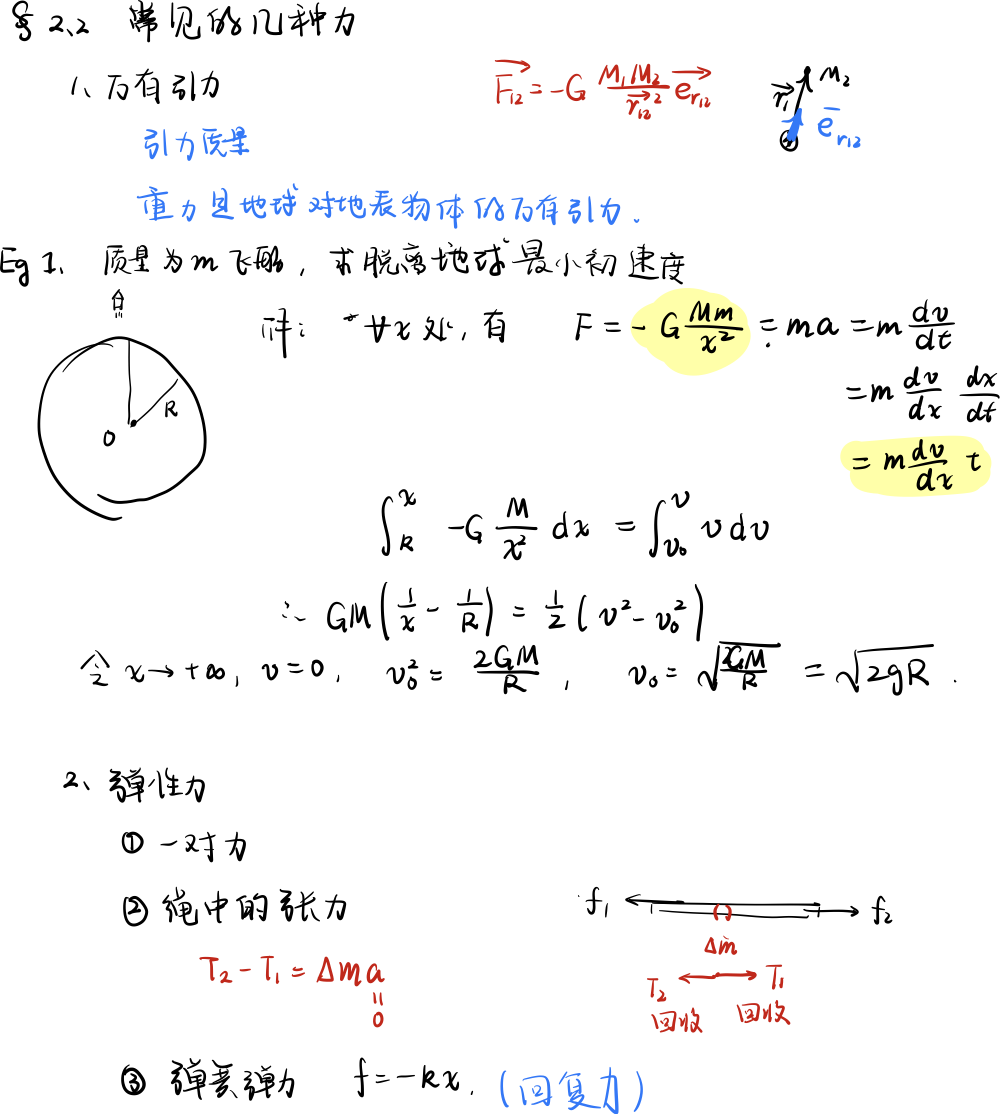 § 2.2 常见的几种力
1、万有引力 $\overrightarrow{F_{12}} = -G \frac{M_1 M_2}{\overrightarrow{r_{12}}^2} \overrightarrow{e_{r_{12}}}$
$\overrightarrow{r_1}$ M₂
$\bar{e}_{r_{12}}$
引力质量
重力是地球对地表物体的万有引力.
Eg 1、质量为m飞船, 求脱离地球最小初速度
R
O
解: ∀x处, 有 $F = -G\frac{Mm}{x^2} = ma = m\frac{dv}{dt}$
$= m\frac{dv}{dx}\frac{dx}{dt}$
$= m\frac{dv}{dx} t$
$\int_R^x -G\frac{M}{x^2} dx = \int_{v_0}^v v dv$
$\therefore GM\left(\frac{1}{x} - \frac{1}{R}\right) = \frac{1}{2}(v^2 - v_0^2)$
令 $x \to +\infty, v = 0, v_0^2 = \frac{2GM}{R}, v_0 = \sqrt{\frac{2GM}{R}} = \sqrt{2gR}$.
2、弹性力
① 一对力
② 绳中的张力
f₁ f₂
Δm
T₂ T₁
回收 回收
T₂ - T₁ = Δma
=
0
③ 弹簧弹力 f = -kx. (回复力)